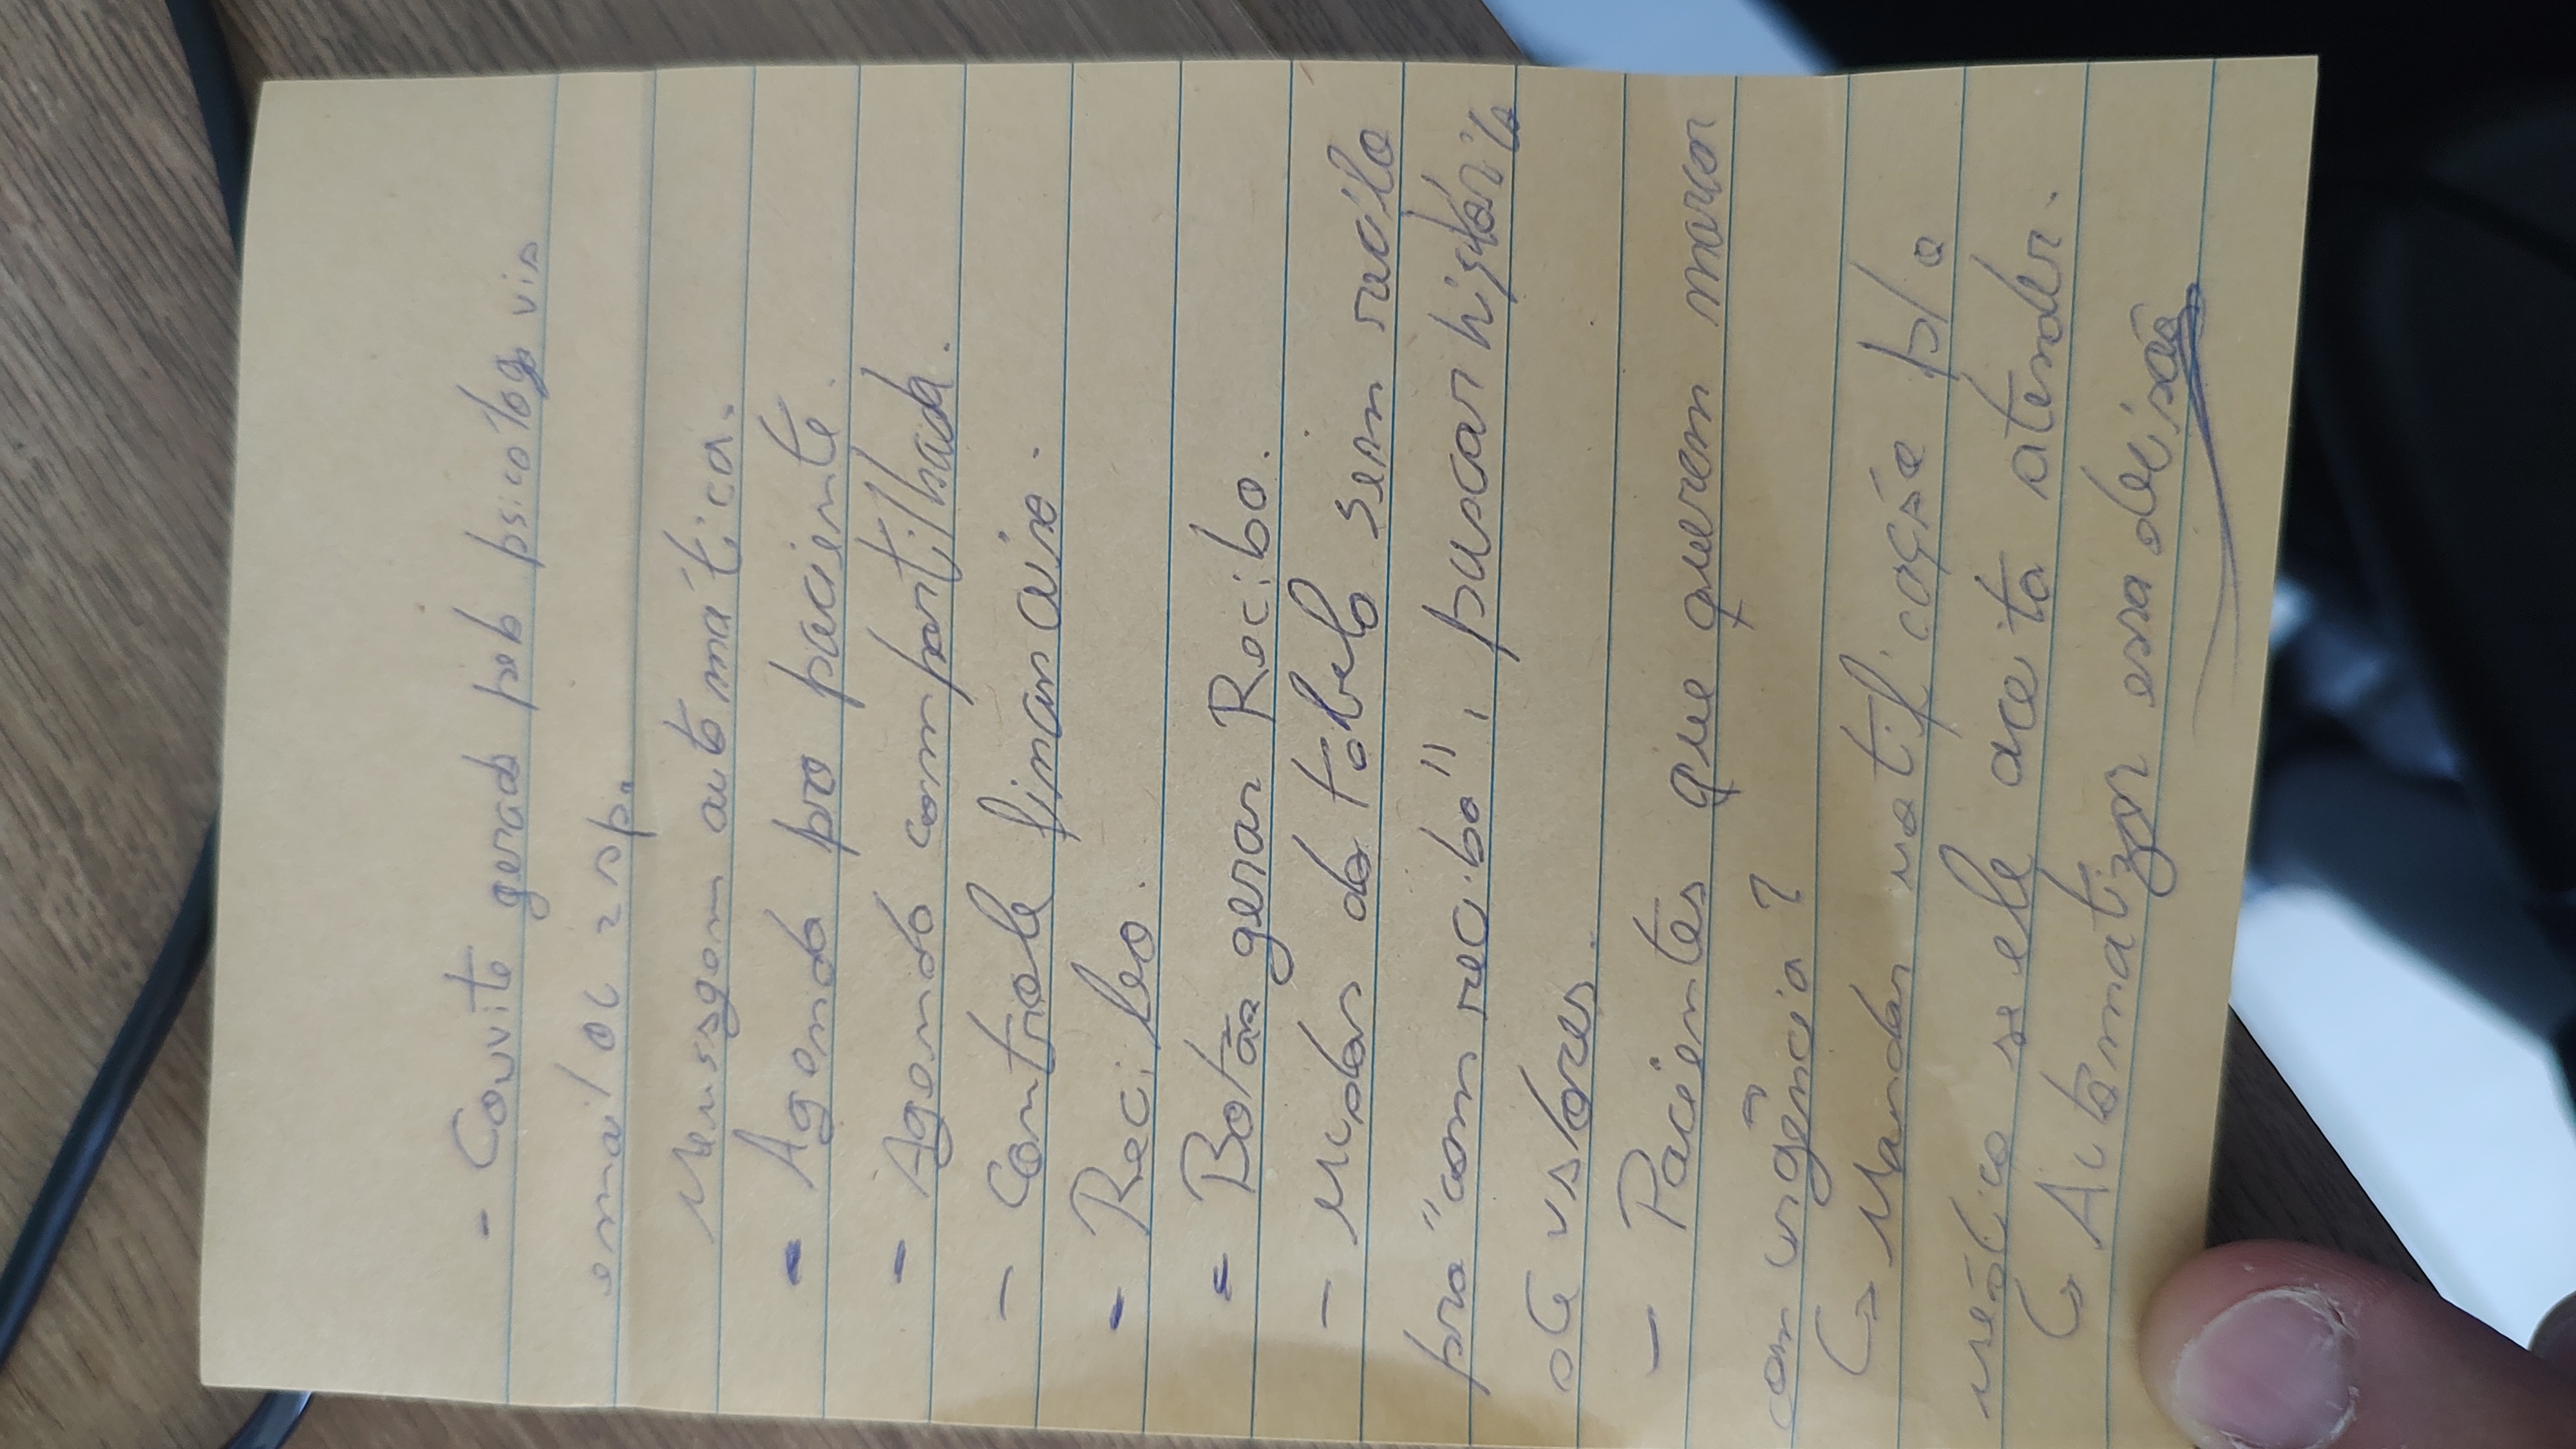 - Convite gerado pelo psicólogo via
email ou zap.
Mensagem automática.
- Agenda pro paciente.
- Agenda compartilhada.
- Controle financeiro.
- Recibo.
- Botão gerar Recibo.
- Mudar da tabela sem recibo
pra "com recibo", puxar histórico
de valores.
- Pacientes que querem marcar
com urgência?
↳ Mandar notificação p/ o
médico se ele aceita atender.
↳ Automatizar essa decisão